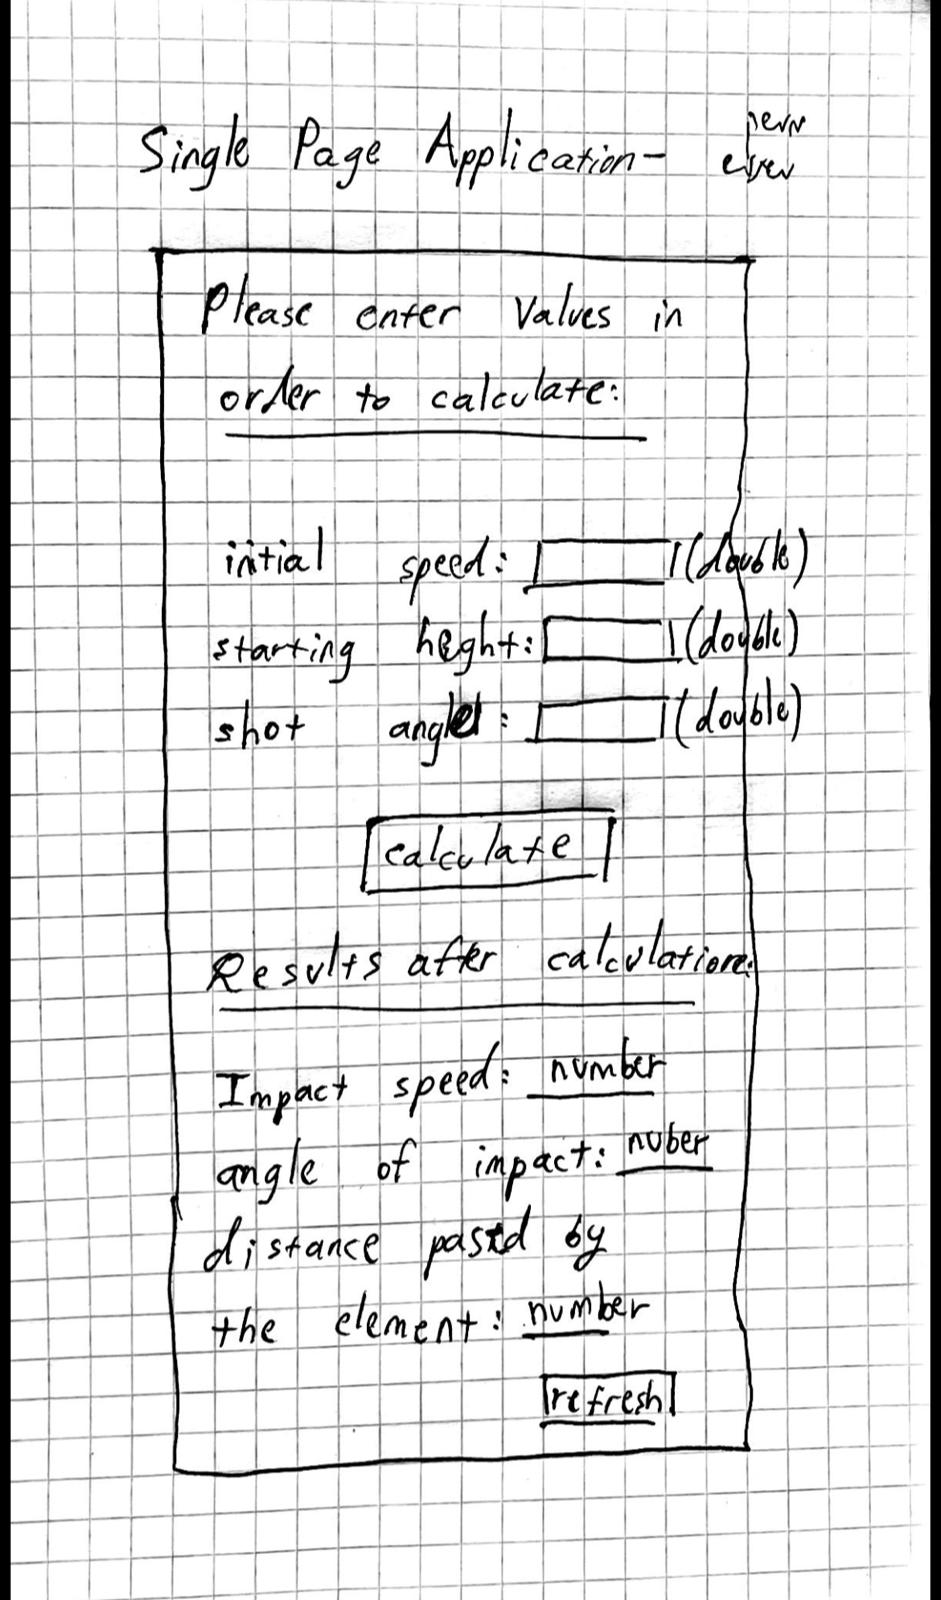 Single Page Application-
Please enter Values in
order to calculate:
initial speed: (double)
starting heght: (double)
shot angle: (double)
calculate
Results after calculation:
Impact speed: number
angle of impact: nuber
distance pased by
the element: number
refresh